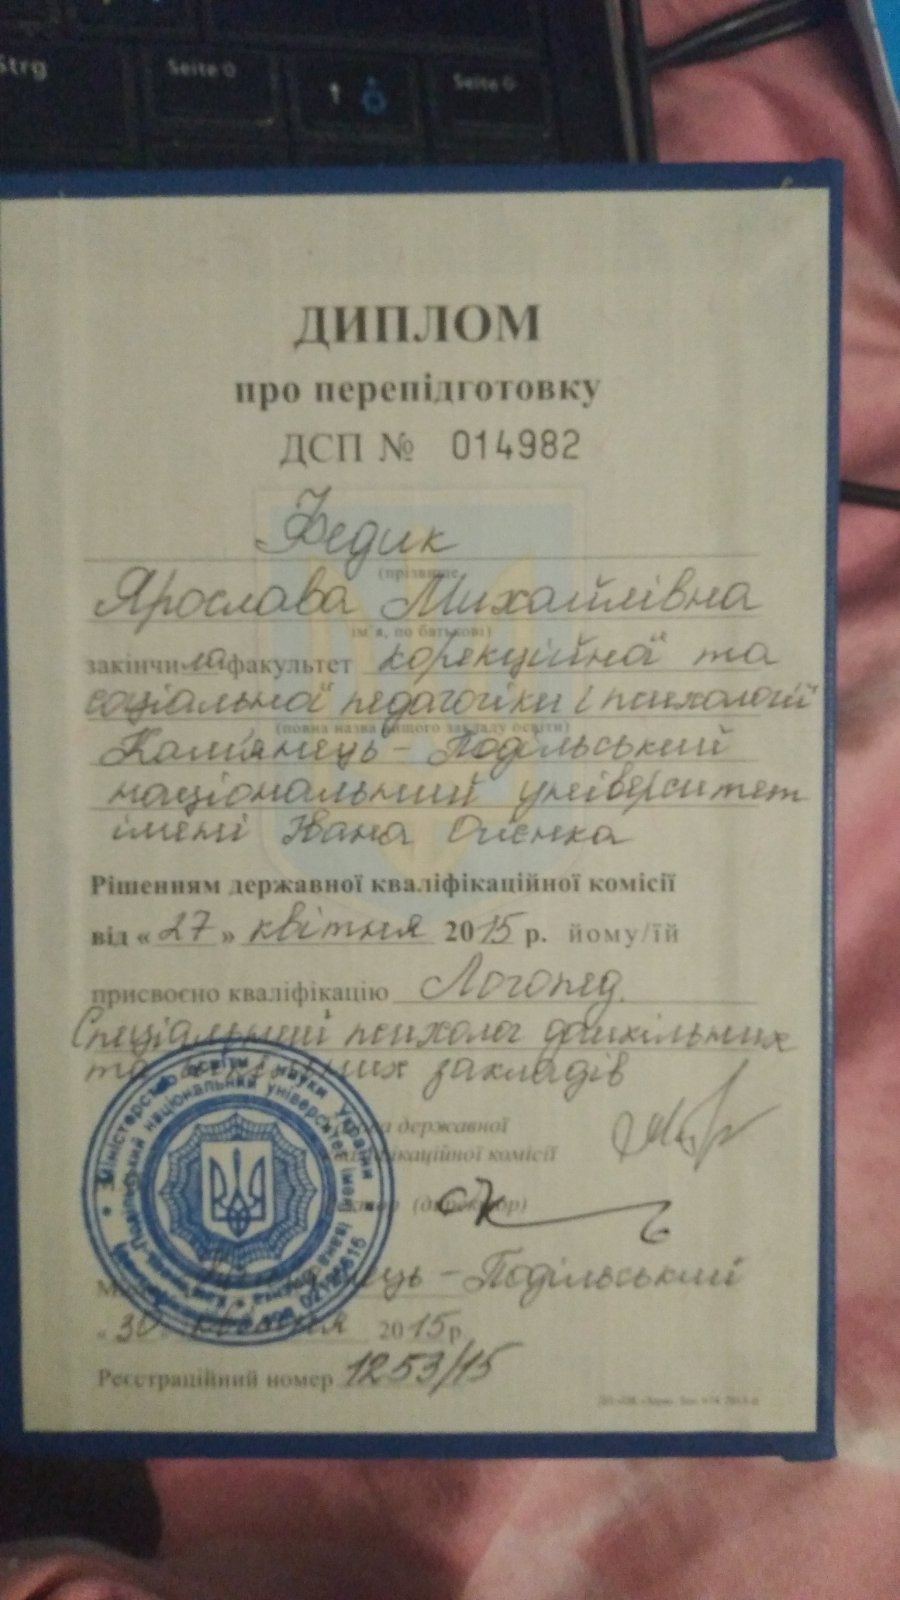 Strg
Seite
Seite
ДИПЛОМ
про перепідготовку
ДСП № 014982
Федик
(прізвище
Ярослава Михайлівна
ім'я, по батькові)
закінчила факультет корекційної та
соціальної педагогіки і психології
(повна назва вищого закладу освіти)
Кам'янець-Подільський
національний університет
імені Івана Огієнка
Рішенням державної кваліфікаційної комісії
від «27» квітня 2015 р. йому/їй
присвоєно кваліфікацію Логопед.
Спеціальний психолог дошкільних
та закладів
державної
комісії
(директор)
Міністерство освіти і науки України
національний університет імені Івана
02125616
Подільський
«30 квітня 2015р.
Реєстраційний номер 1253/15